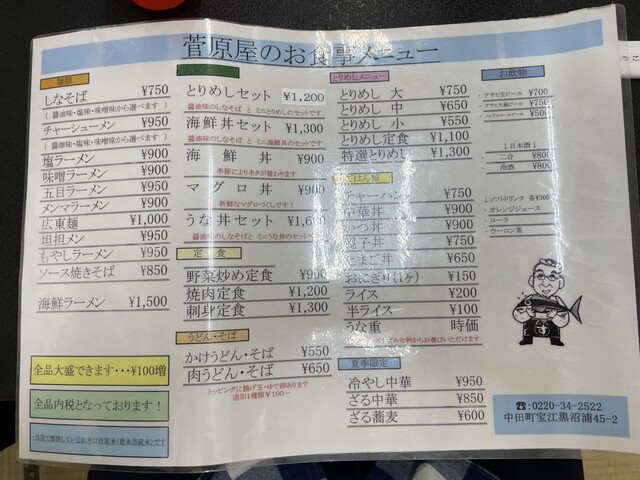 菅原屋のお食事メニュー
麺類
しなそば ¥750
(醤油味・塩味・味噌味から選べます)
チャーシューメン ¥950
(醤油味・塩味・味噌味から選べます)
塩ラーメン ¥900
味噌ラーメン ¥900
五目ラーメン ¥950
メンマラーメン ¥900
広東麺 ¥1,000
坦担メン ¥950
もやしラーメン ¥950
ソース焼きそば ¥850
海鮮ラーメン ¥1,500
全品大盛できます・・・¥100増
全品内税となっております!
人気メニュー
とりめしセット ¥1,200
醤油味のしなそば と ミニとりめしのセットです
海鮮丼セット ¥1,300
醤油味のしなそば と ミニ海鮮丼のセットです
海鮮丼 ¥900
季節によりネタが替わります
マグロ丼 ¥900
新鮮なマグロづくしです!
うな丼セット
醤油味のしなそばと ミニうな丼のセット
定食
野菜炒め定食 ¥900
焼肉定食 ¥1,200
刺身定食 ¥1,300
うどん・そば
かけうどん・そば ¥550
肉うどん・そば ¥650
トッピングに揚げ玉・ゆで卵あります
追加1種類¥100～
とりめしメニュー
とりめし 大 ¥750
とりめし 中 ¥650
とりめし 小 ¥550
とりめし定食 ¥1,100
特選とりめし ¥1,400
ごはん類
チャーハン ¥750
中華丼 ¥900
かつ丼 ¥900
親子丼 ¥750
たまご丼 ¥650
おにぎり(1ヶ) ¥150
ライス ¥200
半ライス ¥100
うな重 時価
からお選びいただけます
夏季限定
冷やし中華 ¥950
ざる中華 ¥850
ざる蕎麦 ¥600
お飲物
・アサヒ生ビール ¥700
・アサヒ大瓶ビール ¥750
・ノンアルコールビール ¥500
↓日本酒↓
・二合 ¥800
・冷酒 ¥800
↓ソフトドリンク 各¥300
・オレンジジュース
・コーラ
・ウーロン茶
☎:0220-34-2522
中田町宝江黒沼浦45-2